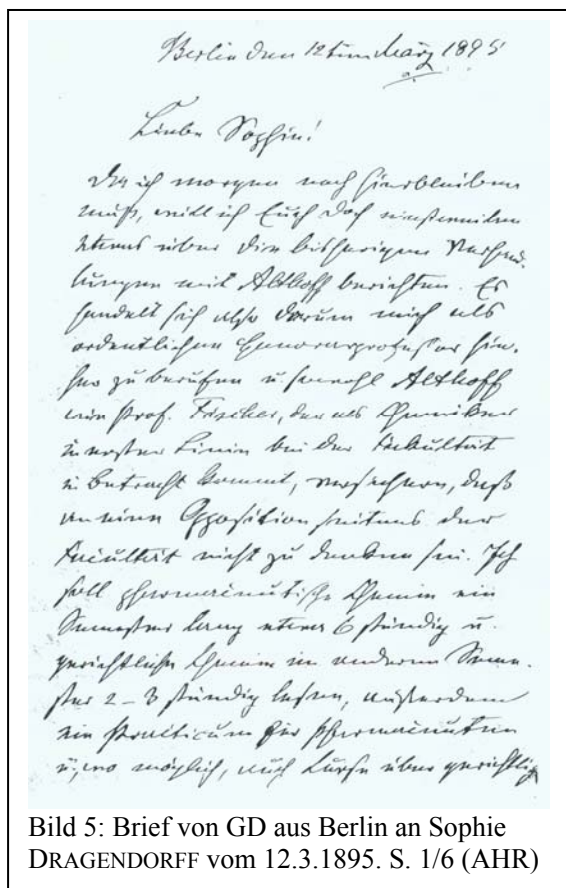 Berlin den 12ten März 1895
Liebe Sophie!
Da ich morgen noch hierbleiben
muß, will ich Euch doch einstweilen
etwas über die bisherigen Verhand-
lungen mit Althoff berichten. Es
handelt sich also darum mich als
ordentlichen Honorarprofessor hier-
her zu berufen u sowohl Althoff
wie Prof. Fischer, der als Chemiker
in erster Linie bei der Facultät
in Betracht kommt, versichern, daß
an eine Opposition seitens der
Facultät nicht zu denken sei. Ich
soll pharmaceutische Chemie ein
Semester lang etwa 6 stündig u.
gerichtliche Chemie im anderen Seme-
ster 2–3 stündig lesen, außerdem
ein Practicum für Pharmaceuten
u, wo möglich, auch Curse über gerichtlich
Bild 5: Brief von GD aus Berlin an Sophie
DRAGENDORFF vom 12.3.1895. S. 1/6 (AHR)